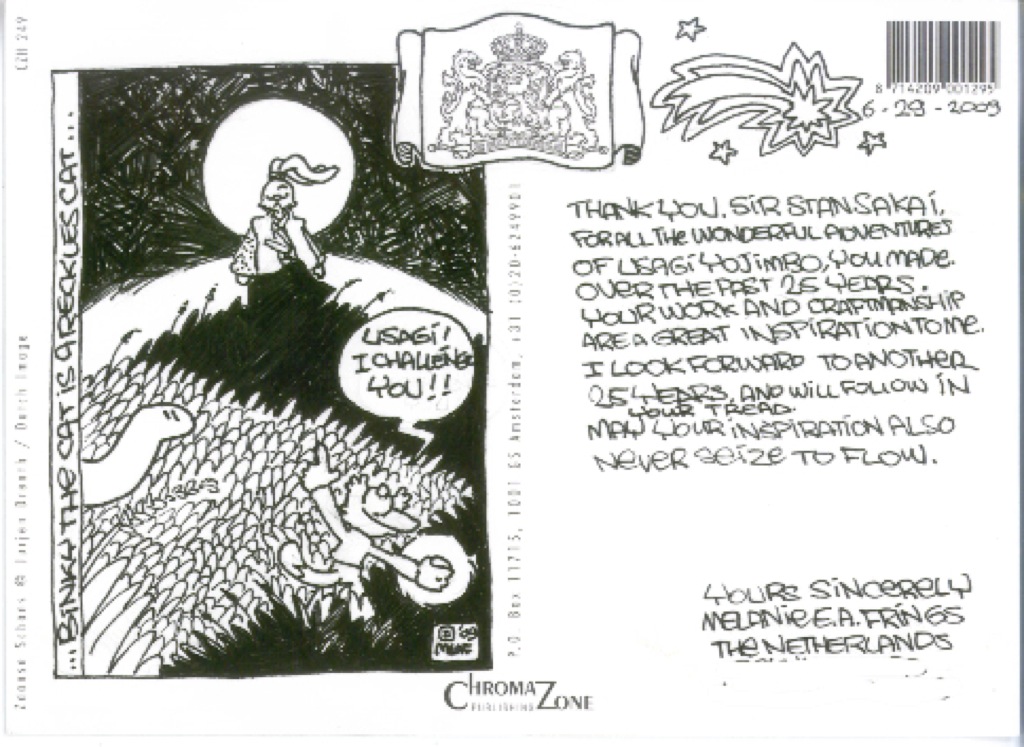 CZH 249
8 714209 001295
6-29-2009
...BINKA THE CAT IS A RECKLES CAT...
USAGi!
I CHALLENGE
YOU!!
© '09
THANK YOU, SIR STAN SAKAi,
FOR ALL THE WONDERFUL ADVENTURES
OF USAGi YOJiMBO, YOU MADE.
OVER THE PAST 25 YEARS.
YOUR WORK AND CRAFTMANSHIP
ARE A GREAT INSPIRATION TO ME.
I LOOK FORWARD TO ANOTHER
25 YEARS, AND WILL FOLLOW IN
YOUR TREAD.
MAY YOUR iNSPIRATION ALSO
NEVER SEIZE TO FLOW.
YOURS SINCERELY
MELANiE E.A. FRiNGS
THE NETHERLANDS
P.O. Box 11715, 1001 GS Amsterdam, +31 (0)20-6249901
CHROMAZONE
PUBLISHING